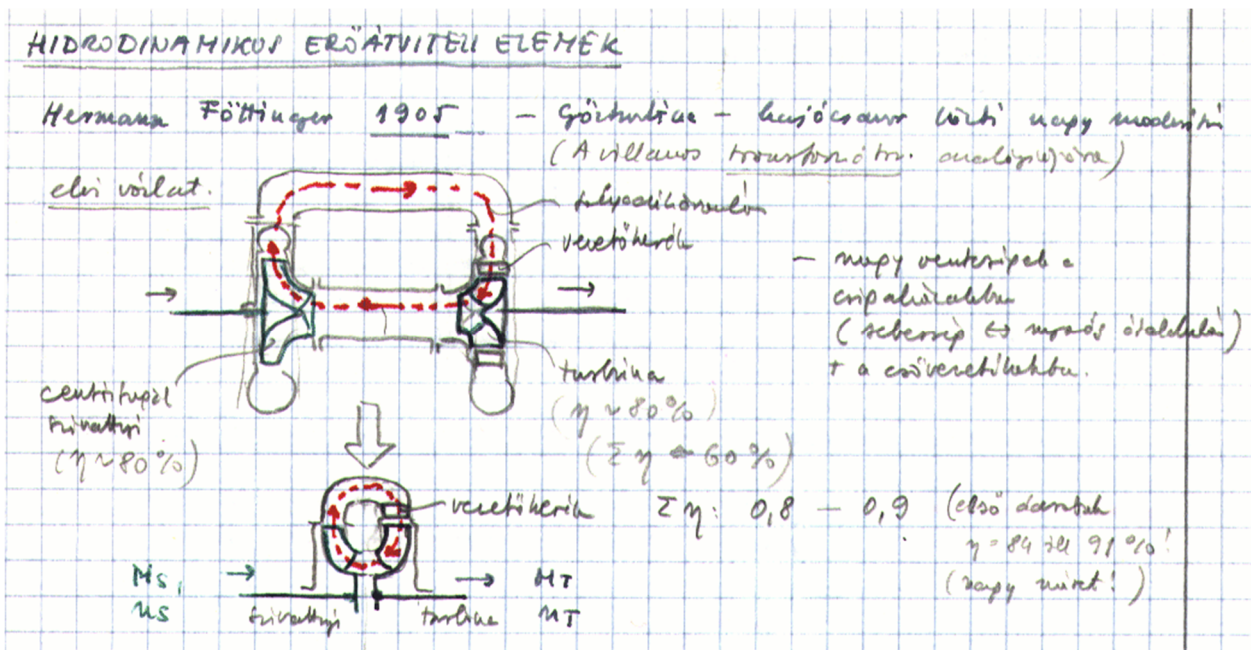 HIDRODINAMIKUS ERŐÁTVITELI ELEMEK
Hermann Föttinger 1905 - Gőzturbina - hajócsavar közti nagy módosítás
(A villamos transzformátor. analógiájára)
elvi vázlat.
folyadékáramlás
vezetőkerék
- nagy veszteségek a
csigaházakban
(sebesség ↔ nyomás átalakulás)
+ a csővezetékekben.
centrifugál
szivattyú
(η ~ 80 %)
turbina
(η ~ 80 %)
(Σ η 60 %)
vezetőkerék
Σ η: 0,8 - 0,9 (első darabok
η = 84 ill 91 %!
(nagy méret!)
MS,
nS
szivattyú
turbina
MT
nT